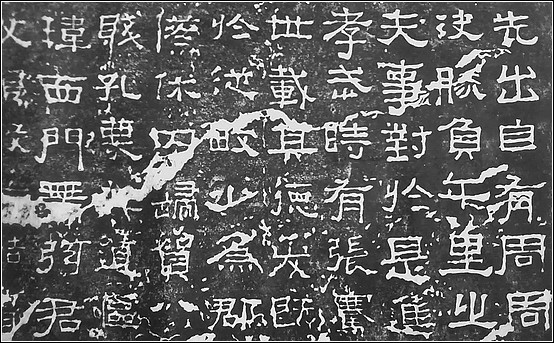 先出自有周周
決勝負千里之
夫事對於是進
孝武時有張騫
世載其德爰既
於從畋少為郡
傺休囚歸賀
賤孔蔑其道區
瑋西門帶弦君